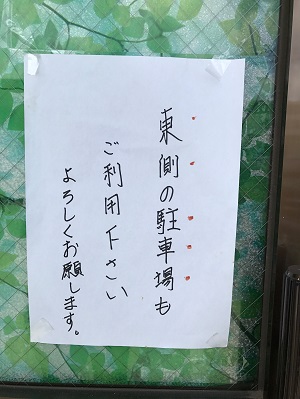 東側の駐車場も
ご利用下さい
よろしくお願します。